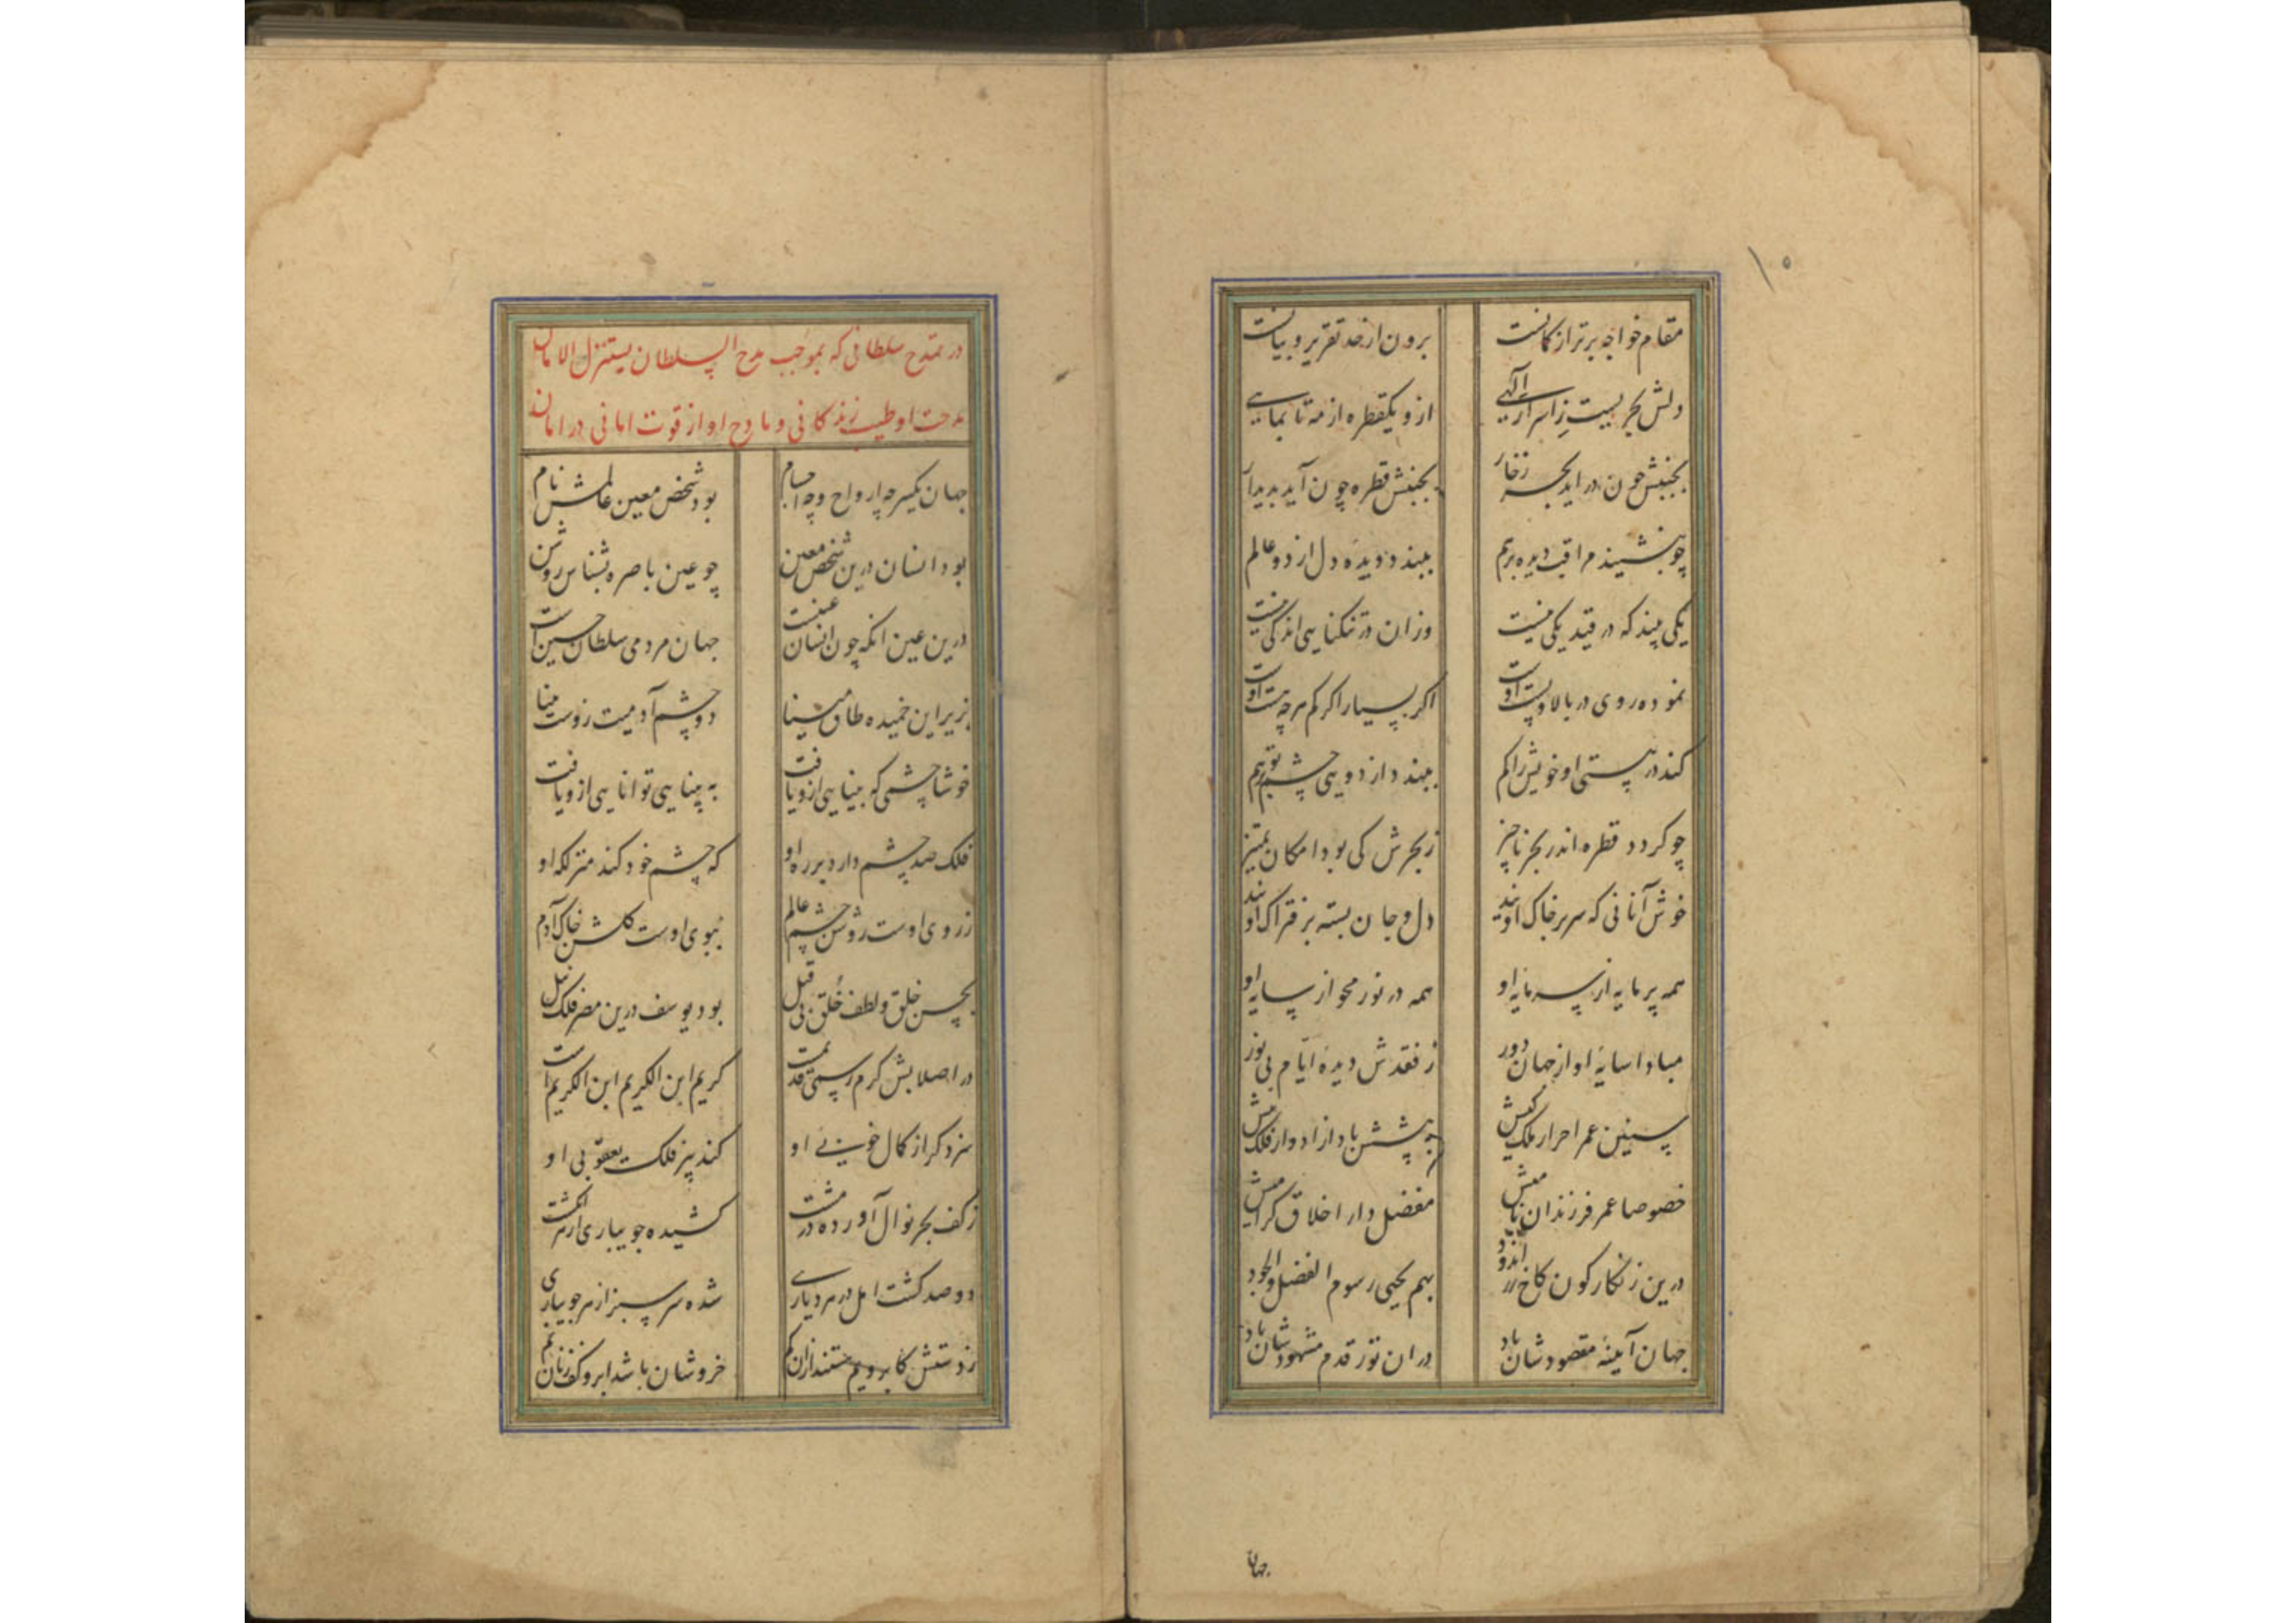 ۱۰
مقام خواجه برتر از کمانست برون از حد تقریر و بیانست
دلش بحریست ز اسرار الهی ازو یکقطره از مه تا بماهی
بجنبش چون در اید بحر زخار بجنبش قطره چون آید پدیدار
چو بنشیند مراقب دیده برهم ببندد دیده دل از دو عالم
یکی بیند که در قید یکی نیست وزان در تنکنایی اندکی نیست
نموده روی در بالا و پست اوست اکر بسیار اکر کم هرچه هست اوست
کند در هستی او خویش را کم ببندد از دویی چشم توهم
چو کردد قطره اندر بحر ناچیز ز بحرش کی بود امکان تمییز
خوش آنانی که سر بر خاک اویند دل و جان بسته بر فتراک اویند
همه پر مایه از سرمایه او همه در نور محو از سایه او
مبادا سایهٔ او از جهان دور ز فقدش دیده ایام بی نور
سنین عمر احرار ملک کیش به پیشش باد از ادوار فلک بیش
خصوصا عمر فرزندان نامیش مفضل دار اخلاق کرامیش
درین زنکارکون کاخ زر اندود بهم یحیی رسوم الفضل والجود
جهان آیینهٔ مقصودشان باد در ان نور قدم مشهودشان باد
جهان
در تمدح سلطانی که بموجب مدح السلطان یستنزل الامان
مدحت او طیب زندکانی و مادح او از قوت امانی در امان
جهان یکسر چه ارواح و چه اجسام بود شخص معین عالمش نام
بود انسان درین شخص معین چو عین باصره بشناس روشن
درین عین انکه چون انسان عینست جهان مردمی سلطان حسین است
بزیر این خمیده طاق مینا دو چشم آدمیت زوست بینا
خوشا چشمی که بینایی ازو یافت به بینایی توانایی ازو یافت
فلک صد چشم دارد بر ره او که چشم خود کند منزلکه او
ز روی اوست روشن چشم عالم ببوی اوست کلشن خاک آدم
بحسن خلق و لطف خُلق بی قیل بود یوسف درین مصر فلک نیل
در اصلابش کرم رسمی قدیمست کریم ابن الکریم ابن الکریم است
سزد کر از کمال خوبی او کند پیر فلک یعقوبی او
ز کف بحر نوال آورده در مشت کشیده جویباری از هر انکشت
دو صد کشت امل در هر دیاری شده سرسبز از هر جویباری
ز دستش کابرویم هستند ازان کم خروشان باشد ابر و کف زنان یم